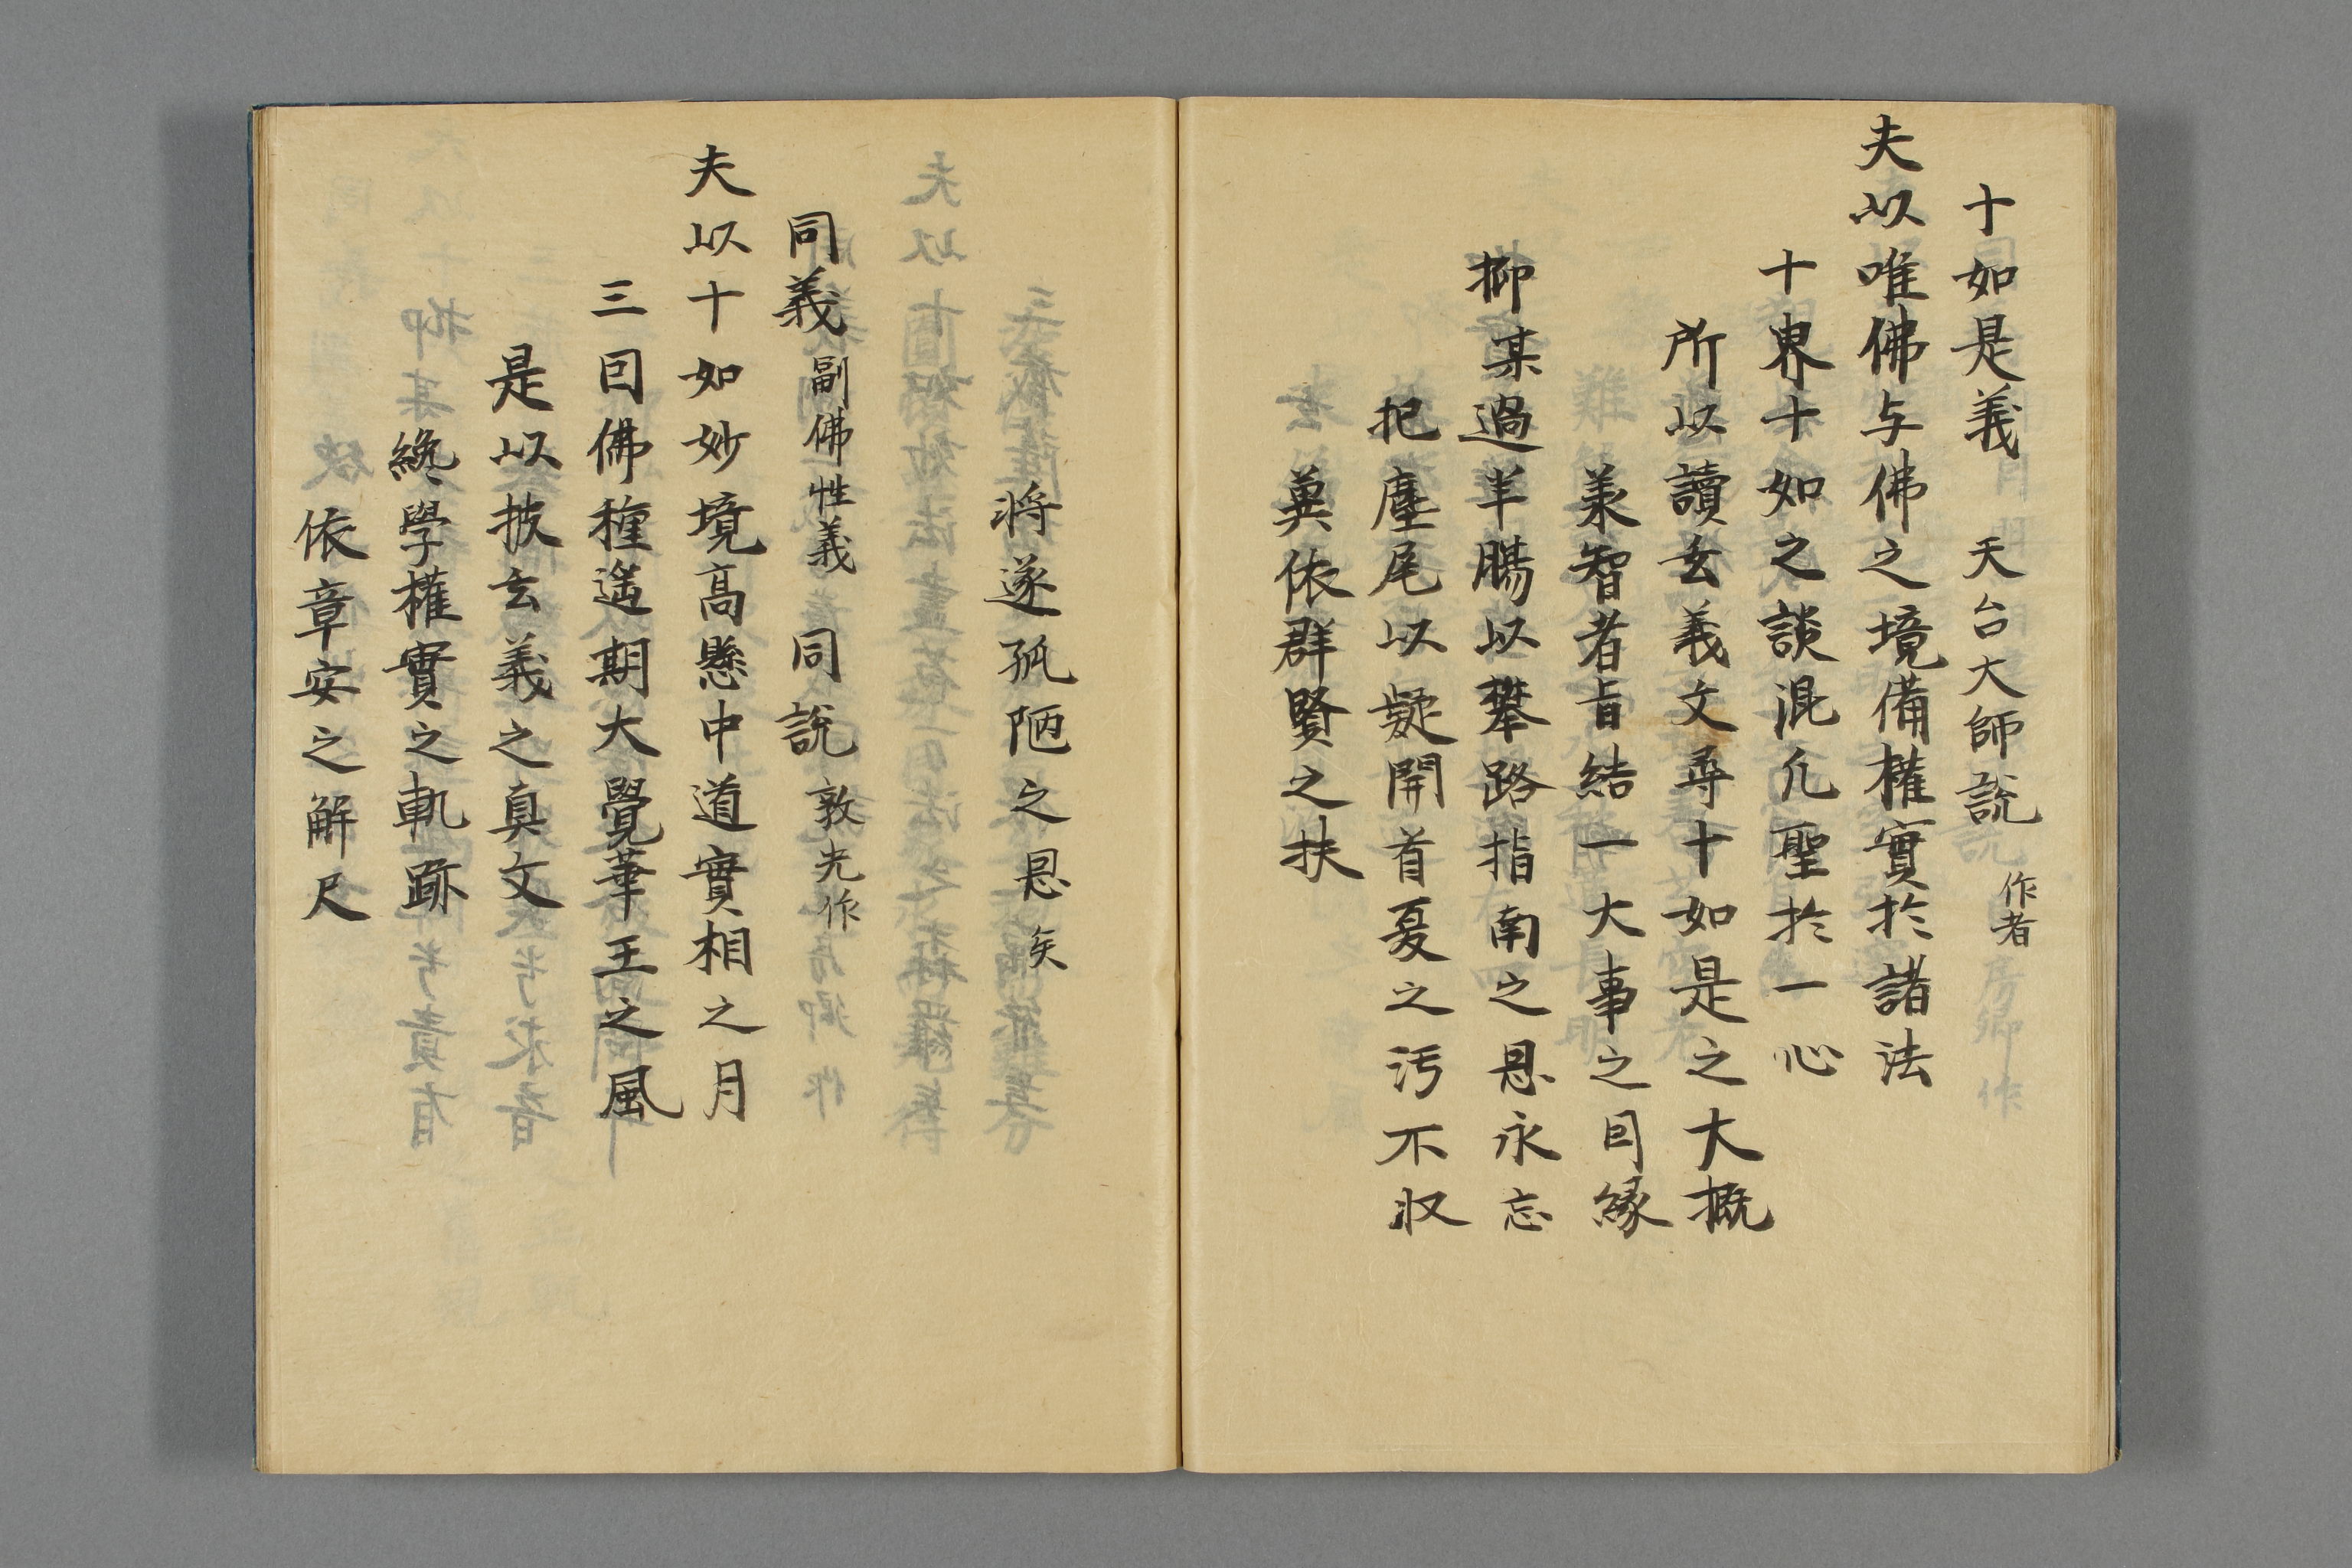 十如是義　天台大師説　作者
夫以唯佛与佛之境備權實於諸法
十界十如之談混凢聖於一心
所以讀玄義文尋十如是之大概
羕智者旨結一大事之囙縁
抑某過羊腸以攀路指南之恩永忘
把麈尾以擬開首夏之汚不収
莫依群賢之扶
将遂孤陋之恩矣
同義　副佛性義　同説　敦光作
夫以十如妙境高懸中道實相之月
三囙佛種遥期大覺華王之風
是以披玄義之真文
纔學權實之軌跡
依章安之解尺